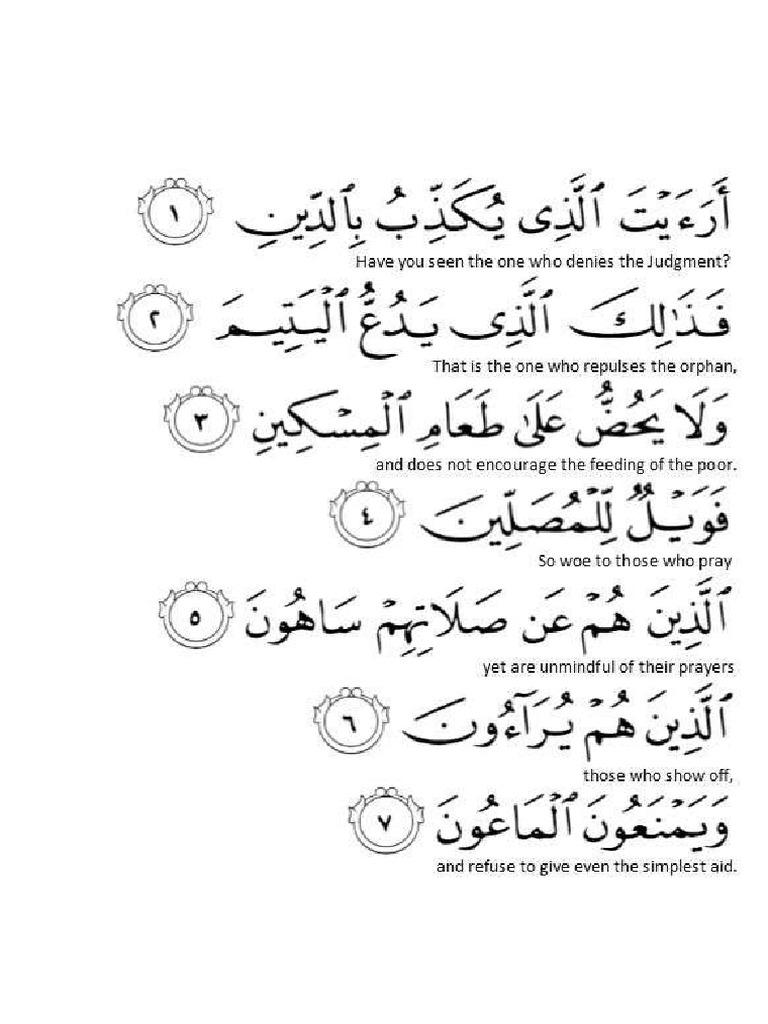 أَرَءَيْتَ ٱلَّذِى يُكَذِّبُ بِٱلدِّينِ ١
Have you seen the one who denies the Judgment?
فَذَٰلِكَ ٱلَّذِى يَدُعُّ ٱلْيَتِيمَ ٢
That is the one who repulses the orphan,
وَلَا يَحُضُّ عَلَىٰ طَعَامِ ٱلْمِسْكِينِ ٣
and does not encourage the feeding of the poor.
فَوَيْلٌ لِّلْمُصَلِّينَ ٤
So woe to those who pray
ٱلَّذِينَ هُمْ عَن صَلَاتِهِمْ سَاهُونَ ٥
yet are unmindful of their prayers
ٱلَّذِينَ هُمْ يُرَآءُونَ ٦
those who show off,
وَيَمْنَعُونَ ٱلْمَاعُونَ ٧
and refuse to give even the simplest aid.